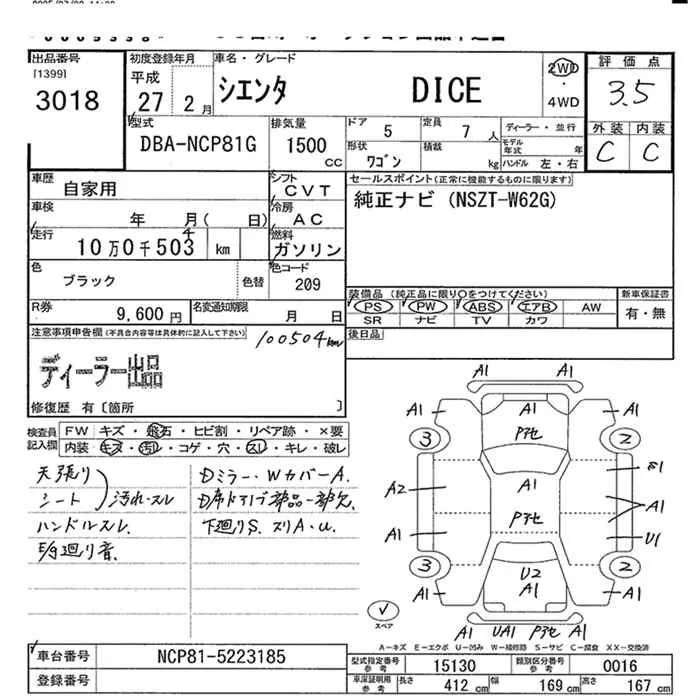 出品番号
[1399]
3018
初度登録年月
平成
27 2月
車名・グレード
シエンタ DICE
2WD
・
4WD
評価点
3.5
外装 内装
C C
型式
DBA-NCP81G
排気量
1500
CC
ドア 5
定員 7人
形状
ワゴン
積載
kg
ディーラー・並行
モデル
年式 年
ハンドル 左・右
車歴
自家用
シフト
CVT
車検
年 月( 日)
冷房
AC
走行
10万0千503 km
4
燃料
ガソリン
色
ブラック
色替
色コード
209
R券
9,600円
名変通知期限
月 日
セールスポイント(正常に機能するものに限ります)
純正ナビ (NSZT-W62G)
装備品 (純正品に限り○をつけてください)
新車保証書
PS PW ABS エアB AW
有・無
SR ナビ TV カワ
後日品
注意事項申告欄(不具合内容等は具体的に記入して下さい)
100504km
ディーラー出品
修復歴 有〔箇所 〕
検査員
記入欄
FW キズ・飛石・ヒビ割・リペア跡・×要
内装 キズ・汚レ・コゲ・穴・スレ・キレ・破レ
天張り
シート
汚れ・スレ
ハンドルスレ.
廻り音.
Dミラー・WカバーA.
D席ドア 部品一部欠.
下廻りS. スリA・U.
A1
A1 A1 A1
Pアセ
3 2
A2 A1 A1
Pアセ
A1 U1
3 2
U2
A1
A1 A1
A1 UA1 Pアセ A1
スペア
A-キズ E-エクボ U-凹み W-補修跡 S-サビ C-腐食 XX-交換済
車台番号
NCP81-5223185
登録番号
型式指定番号
参考
15130
類別区分番号
参考
0016
車庫証明用
参考
長さ 412 cm
幅 169 cm
高さ 167 cm